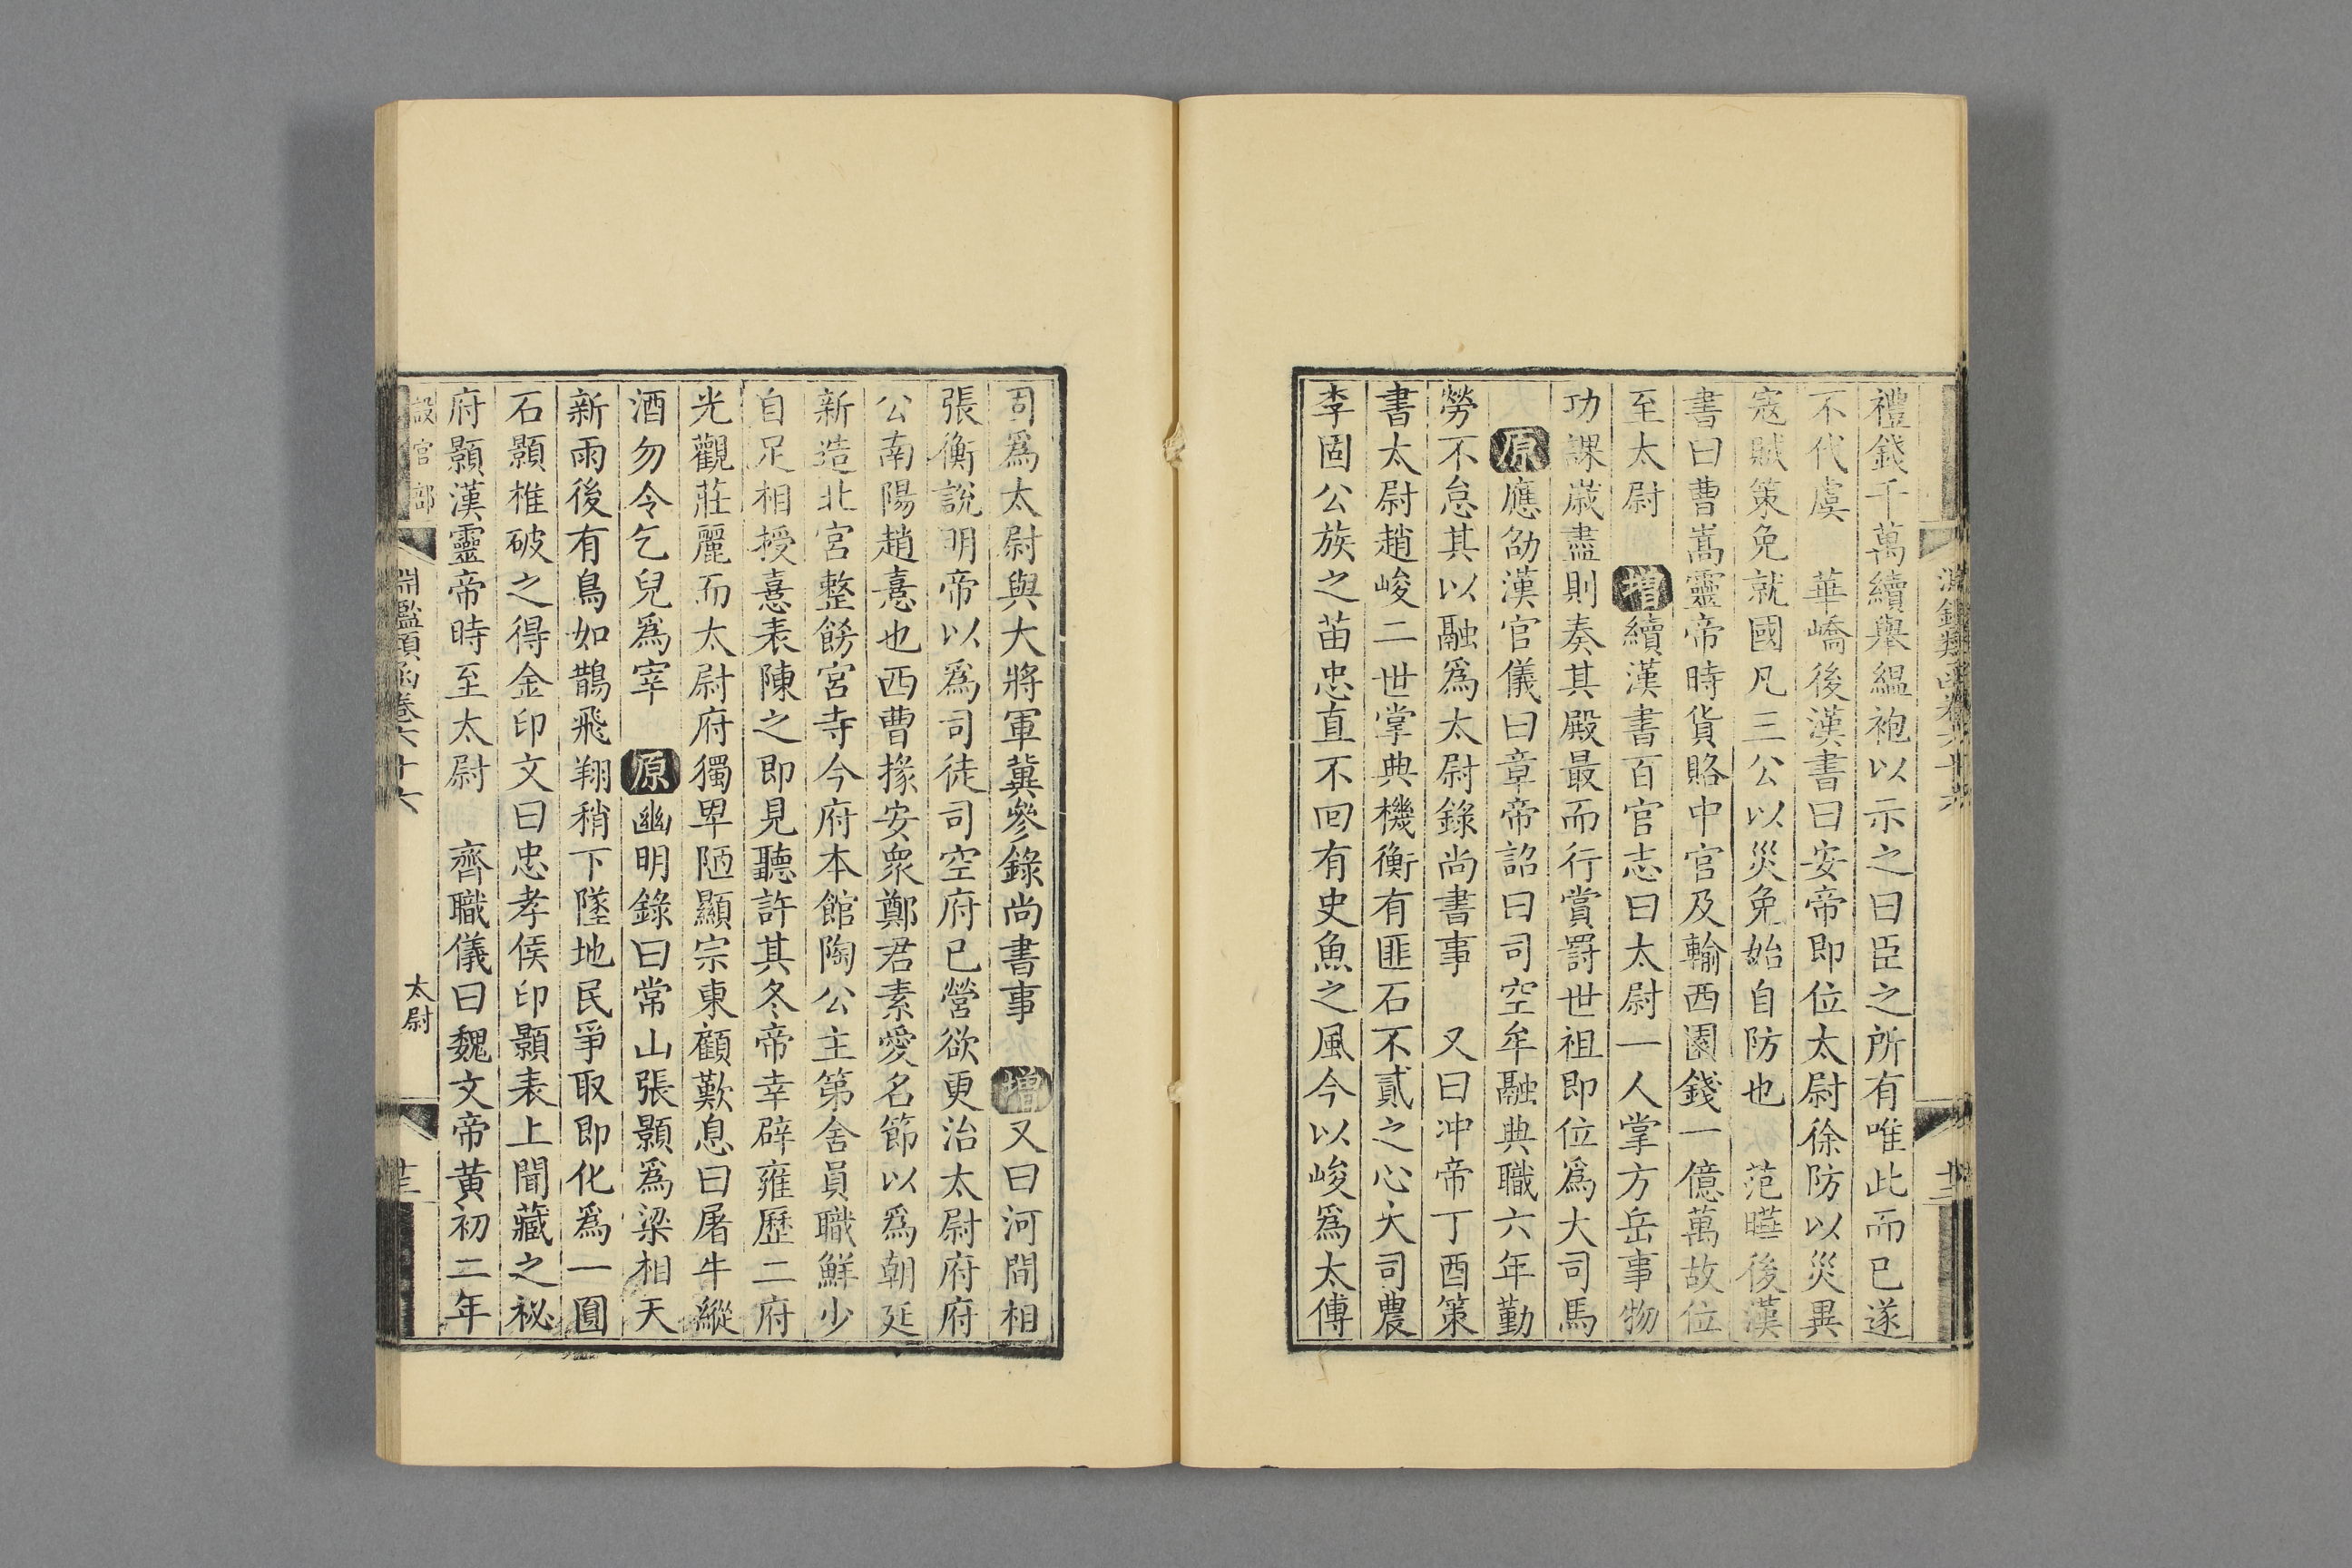 禮錢千萬續舉縕袍以示之曰臣之所有唯此而已遂
不代虞　華嶠後漢書曰安帝即位太尉徐防以災異
寇賊策免就國凡三公以災免始自防也　范曄後漢
書曰曹嵩靈帝時貨賂中官及輸西園錢一億萬故位
至太尉　增續漢書百官志曰太尉一人掌方岳事物
功課歲盡則奏其殿最而行賞罰世祖即位爲大司馬
原應劭漢官儀曰章帝詔曰司空牟融典職六年勤
勞不怠其以融爲太尉錄尚書事　又曰冲帝丁酉策
書太尉趙峻二世掌典機衡有匪石不貳之心大司農
李固公族之苗忠直不回有史魚之風今以峻爲太傅
司爲太尉與大將軍冀參錄尚書事　增又曰河間相
張衡說明帝以爲司徒司空府已營欲更治太尉府府
公南陽趙憙也西曹掾安衆鄭君素愛名節以爲朝廷
新造北宮整飭宮寺今府本館陶公主第舍員職鮮少
自足相授憙表陳之即見聽許其冬帝幸辟雍歷二府
光觀莊麗而太尉府獨卑陋顯宗東顧歎息曰屠牛縱
酒勿令乞兒爲宰　原幽明錄曰常山張顥爲梁相天
新雨後有鳥如鵲飛翔稍下墜地民爭取即化爲一圓
石顥椎破之得金印文曰忠孝侯印顥表上聞藏之祕
府顥漢靈帝時至太尉　齊職儀曰魏文帝黃初二年
設官部　淵鑑類函卷六十六　太尉